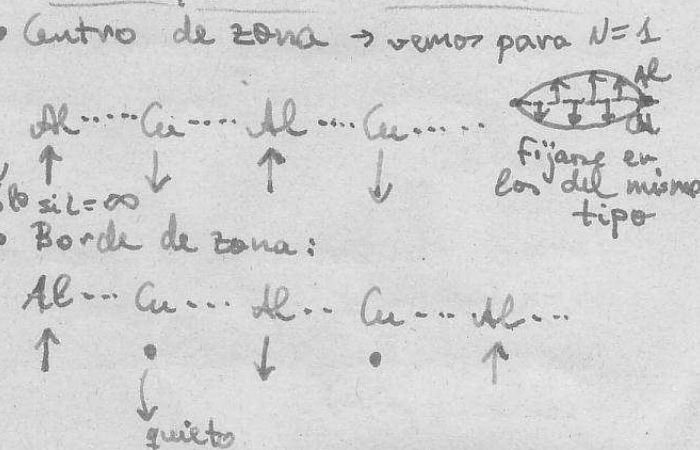 • Centro de zona → vemos para N=1
Al ····· Cu ···· Al ···· Cu ·····
Al
Cu
Fijarse en
los del mismo
tipo
si L=∞
• Borde de zona:
Al ··· Cu ··· Al ·· Cu ··· Al ···
quieto